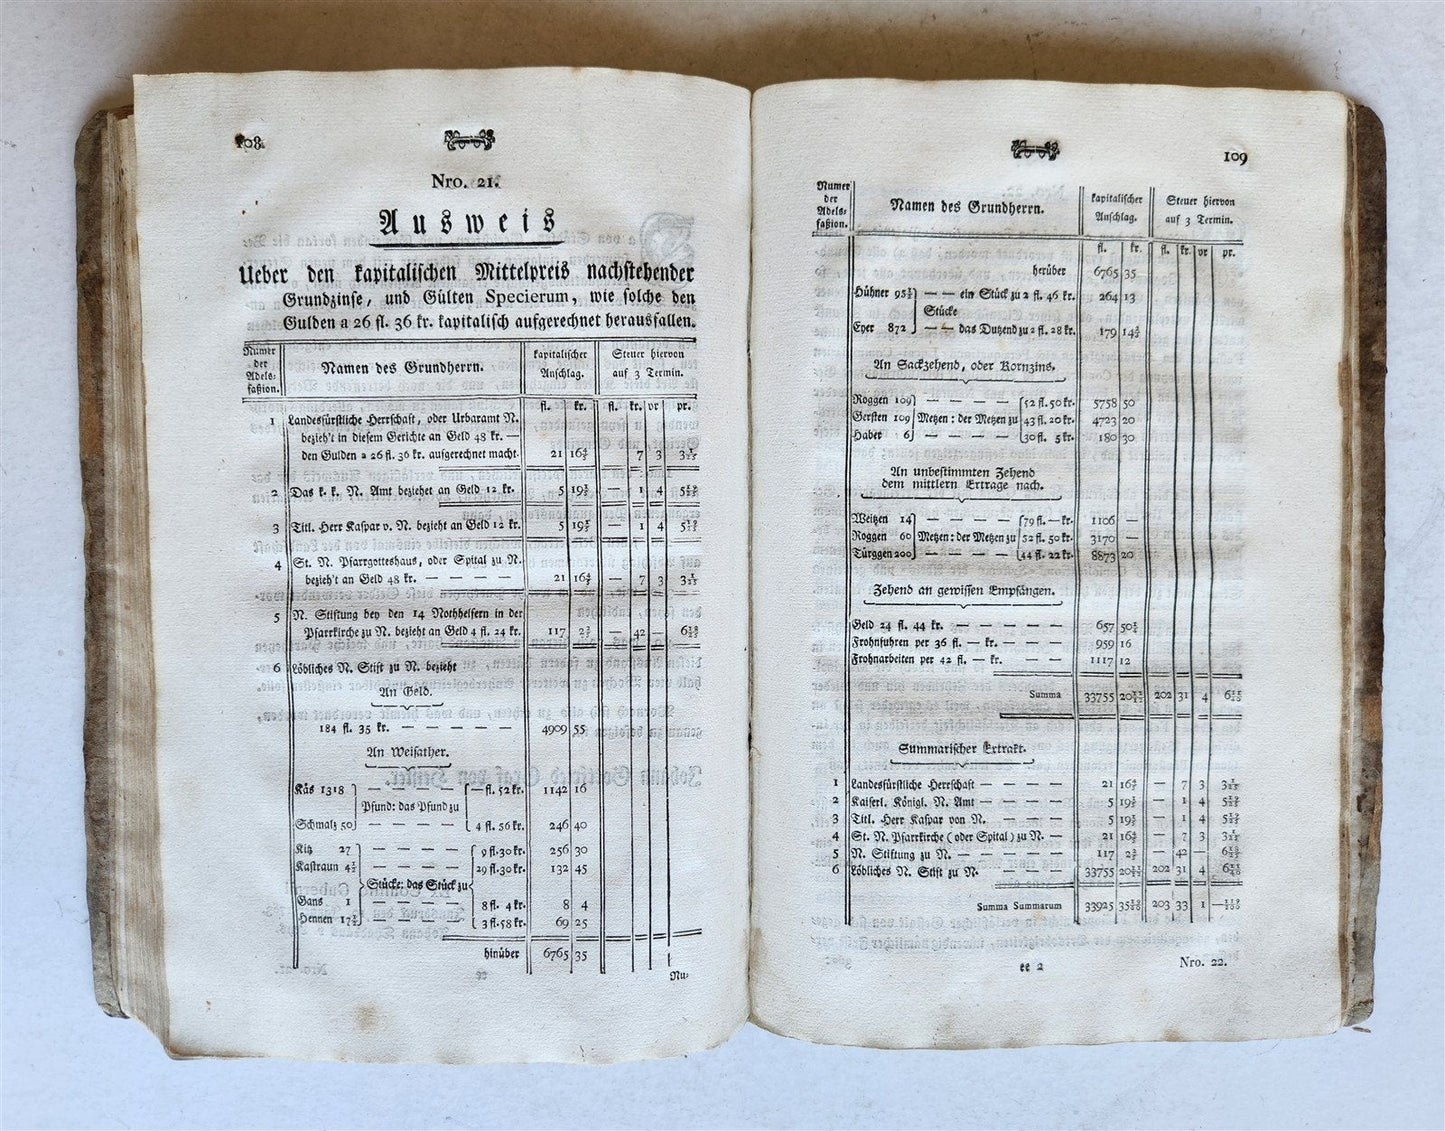 108
Nro. 21.
Ausweis
Ueber den kapitalischen Mittelpreis nachstehender
Grundzinse, und Gülten Specierum, wie solche den
Gulden a 26 fl. 36 kr. kapitalisch aufgerechnet herausfallen.
Numer der Adels-faßion. Namen des Grundherrn. kapitalischer Anschlag. Steuer hiervon auf 3 Termin.
fl. kr. fl. kr. vr pr.
1 Landesfürstliche Herrschaft, oder Urbaramt N.
bezieh't in diesem Gerichte an Geld 48 kr. —
den Gulden a 26 fl. 36 kr. aufgerechnet macht. 21 16 4/5 — 7 3
2 Das k. k. N. Amt beziehet an Geld 12 kr. 5 19 — 1 4
3 Titl. Herr Kaspar v. N. bezieht an Geld 12 kr. 5 19 — 1 4
4 St. N. Pfarrgotteshaus, oder Spital zu N.
bezieh't an Geld 48 kr. — — — — 21 16 4/5 — 7 3
5 N. Stiftung bey den 14 Nothhelfern in der
Pfarrkirche zu N. bezieht an Geld 4 fl. 24 kr. 117 2 — 42 —
6 Löbliches N. Stift zu N. bezieht
An Geld.
184 fl. 35 kr. — — — — — 4909 55
An Weisather.
Käs 1318 — — — — — fl. 52 kr. 1142 16
Pfund: das Pfund zu
Schmalz 50 — — — — 4 fl. 56 kr. 246 40
Kitz 27 — — — — 9 fl. 30 kr. 256 30
Kastraun 4 1/2 — — — — 29 fl. 30 kr. 132 45
Stücke: das Stück zu
Gans 1 — — — — 8 fl. 4 kr. 8 4
Hennen 17 1/2 — — — — 3 fl. 58 kr. 69 25
hinüber 6765 35
ee
Nu-
109
Numer der Adels-faßion. Namen des Grundherrn. kapitalischer Anschlag. Steuer hiervon auf 3 Termin.
fl. kr. fl. kr. vr pr.
herüber 6765 35
Hühner 95 1/2 — — ein Stück zu 2 fl. 46 kr. 264 13
Stücke
Eyer 872 — — das Dutzend zu 2 fl. 28 kr. 179 14
An Sackzehend, oder Kornzins.
Roggen 109 — — — — 52 fl. 50 kr. 5758 50
Gersten 109 Metzen: der Metzen zu 43 fl. 20 kr. 4723 20
Haber 6 — — — — 30 fl. 5 kr. 180 30
An unbestimmten Zehend
dem mittlern Ertrage nach.
Weitzen 14 — — — — 79 fl. — kr. 1106 —
Roggen 60 Metzen: der Metzen zu 52 fl. 50 kr. 3170 —
Türggen 200 — — — — 44 fl. 22 kr. 8873 20
Zehend an gewissen Empfängen.
Geld 24 fl. 44 kr. — — — — 657 50
Frohnfuhren per 36 fl. — kr. — — — 959 16
Frohnarbeiten per 42 fl. — kr. — — — 1117 12
Summa 33755 20 202 31 4
Summarischer Extrakt.
1 Landesfürstliche Herrschaft — — — — 21 16 4/5 — 7 3
2 Kaiserl. Königl. N. Amt — — — — 5 19 — 1 4
3 Titl. Herr Kaspar von N. — — — 5 19 — 1 4
4 St. N. Pfarrkirche (oder Spital) zu N. — 21 16 4/5 — 7 3
5 N. Stiftung zu N. — — — — — — 117 2 — 42 —
6 Löbliches N. Stift zu N. — — — — 33755 20 202 31 4
Summa Summarum 33925 35 203 33 1
ee 2
Nro. 22.